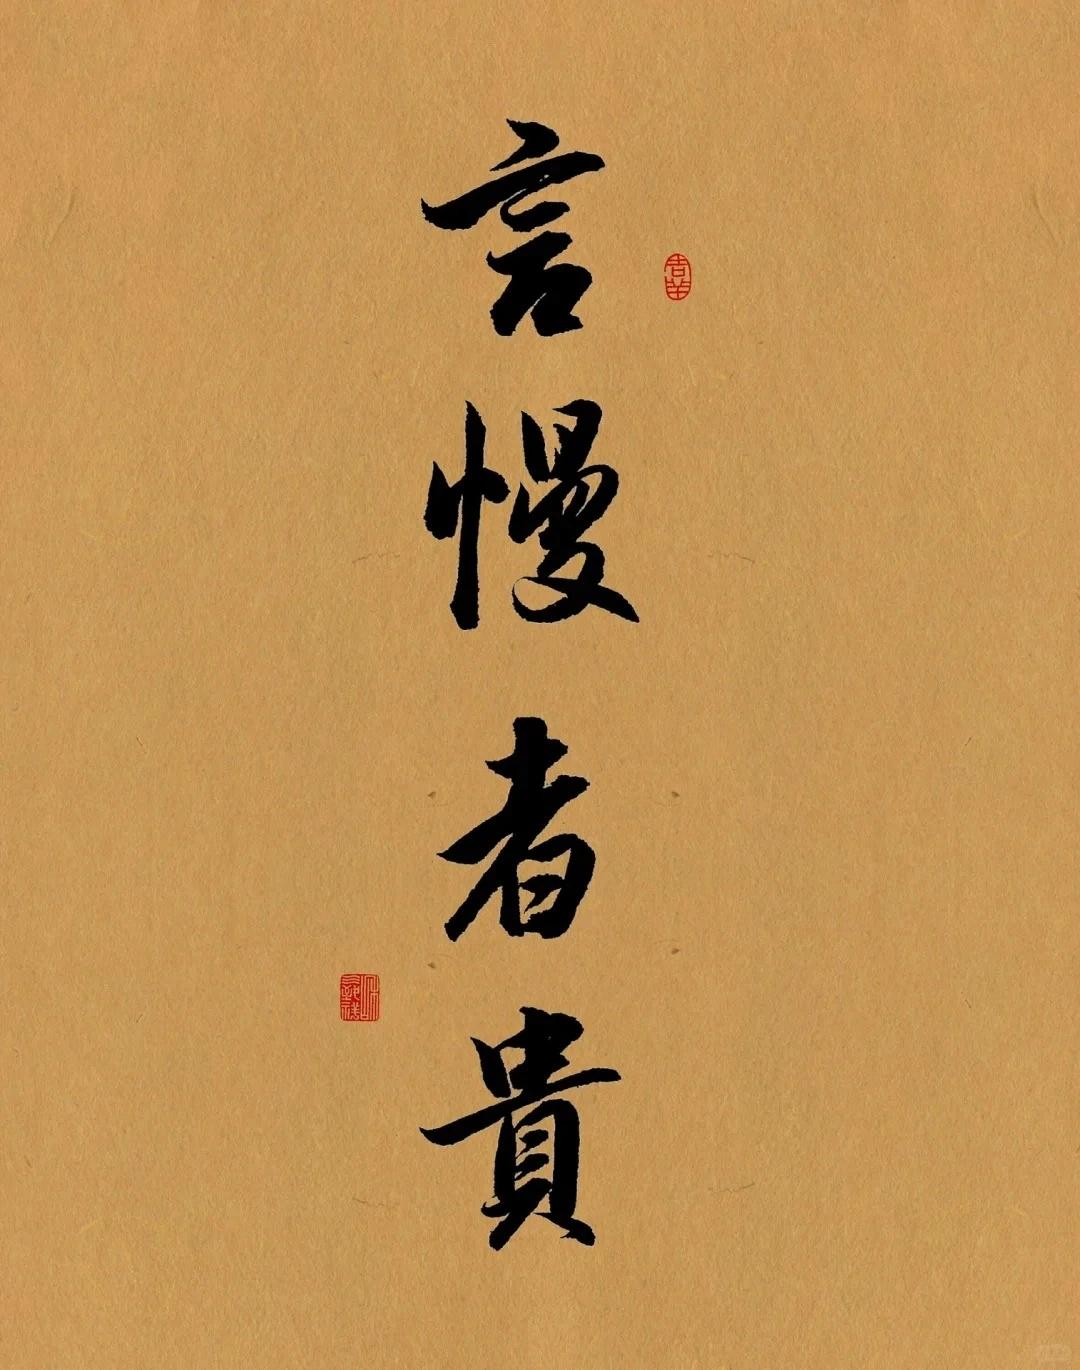 言慢者貴